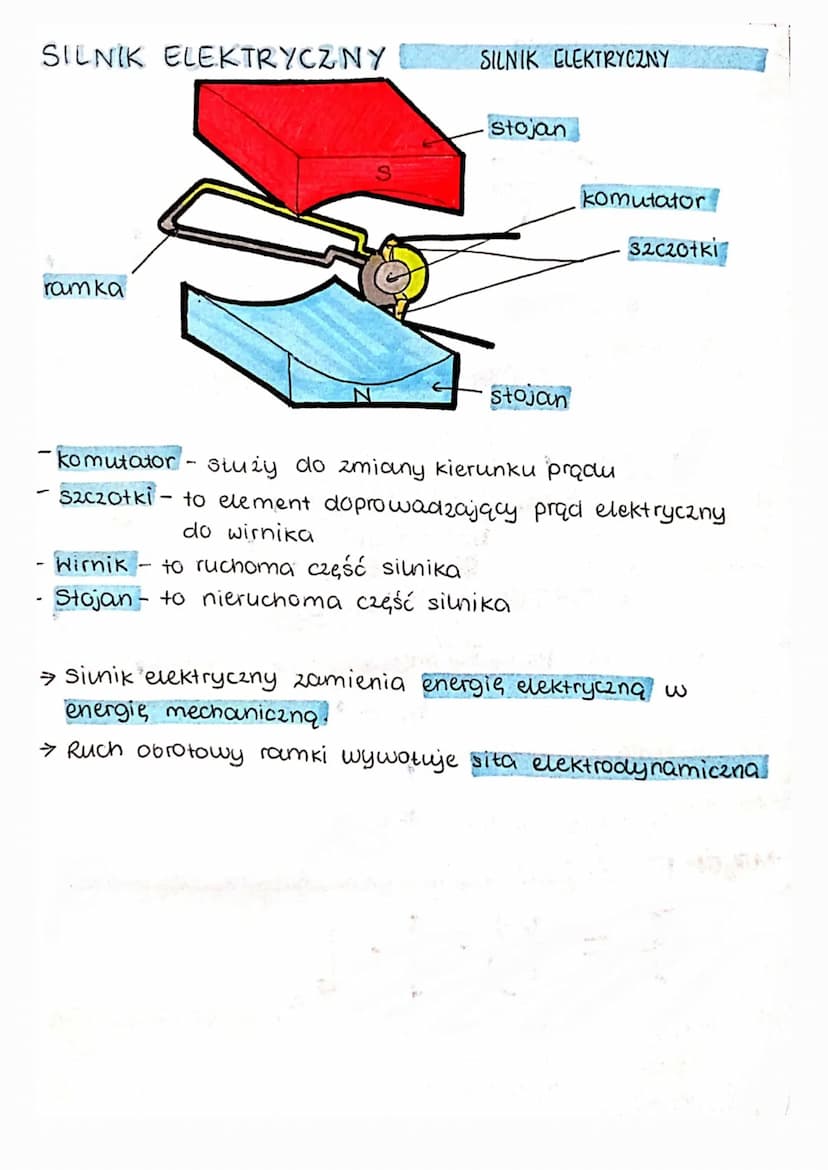 SILNIK ELEKTRYCZNY SILNIK ELEKTRYCZNY
stojan
S
komutator
szczotki
ramka
N
stojan
- komutator - służy do zmiany kierunku prądu
- szczotki - to element doprowadzający prąd elektryczny
do wirnika
- Wirnik - to ruchoma część silnika
- Stojan - to nieruchoma część silnika
→ Silnik elektryczny zamienia energię elektryczną w
energię mechaniczną.
→ Ruch obrotowy ramki wywołuje siła elektrodynamiczna